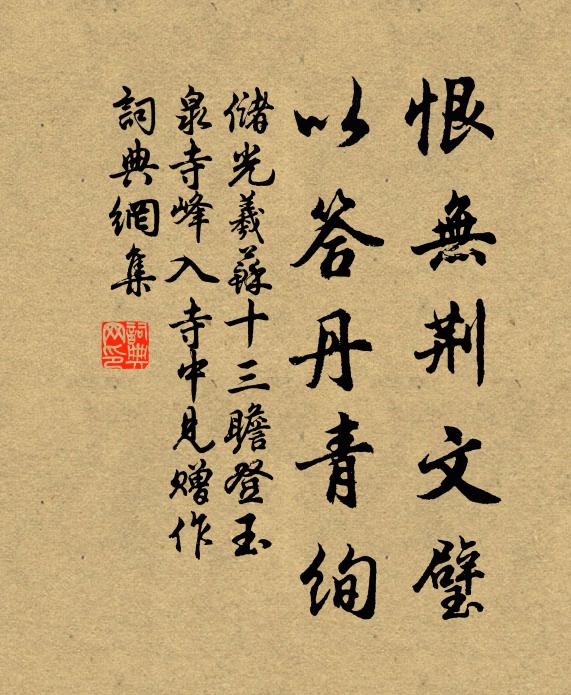 恨無荆文璧
以答丹青絢
儲光羲蘇十三瞻登玉
泉寺峰入寺中見贈作
詞典網集
詞典网印